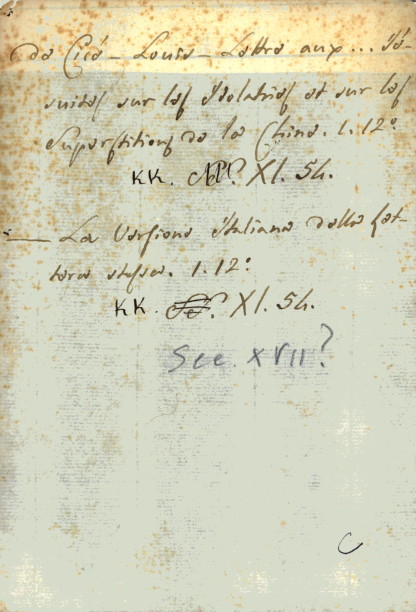 de Cicé - Louis - Lettre aux ... Jé-
suites sur les Idolatries et sur les
Superstitions de la Chine. 1. 12°
KK. XI. 54.
— La Versione italiana della let-
tera stessa. 1. 12°.
KK. XI. 54.
Sec. XVII?
C